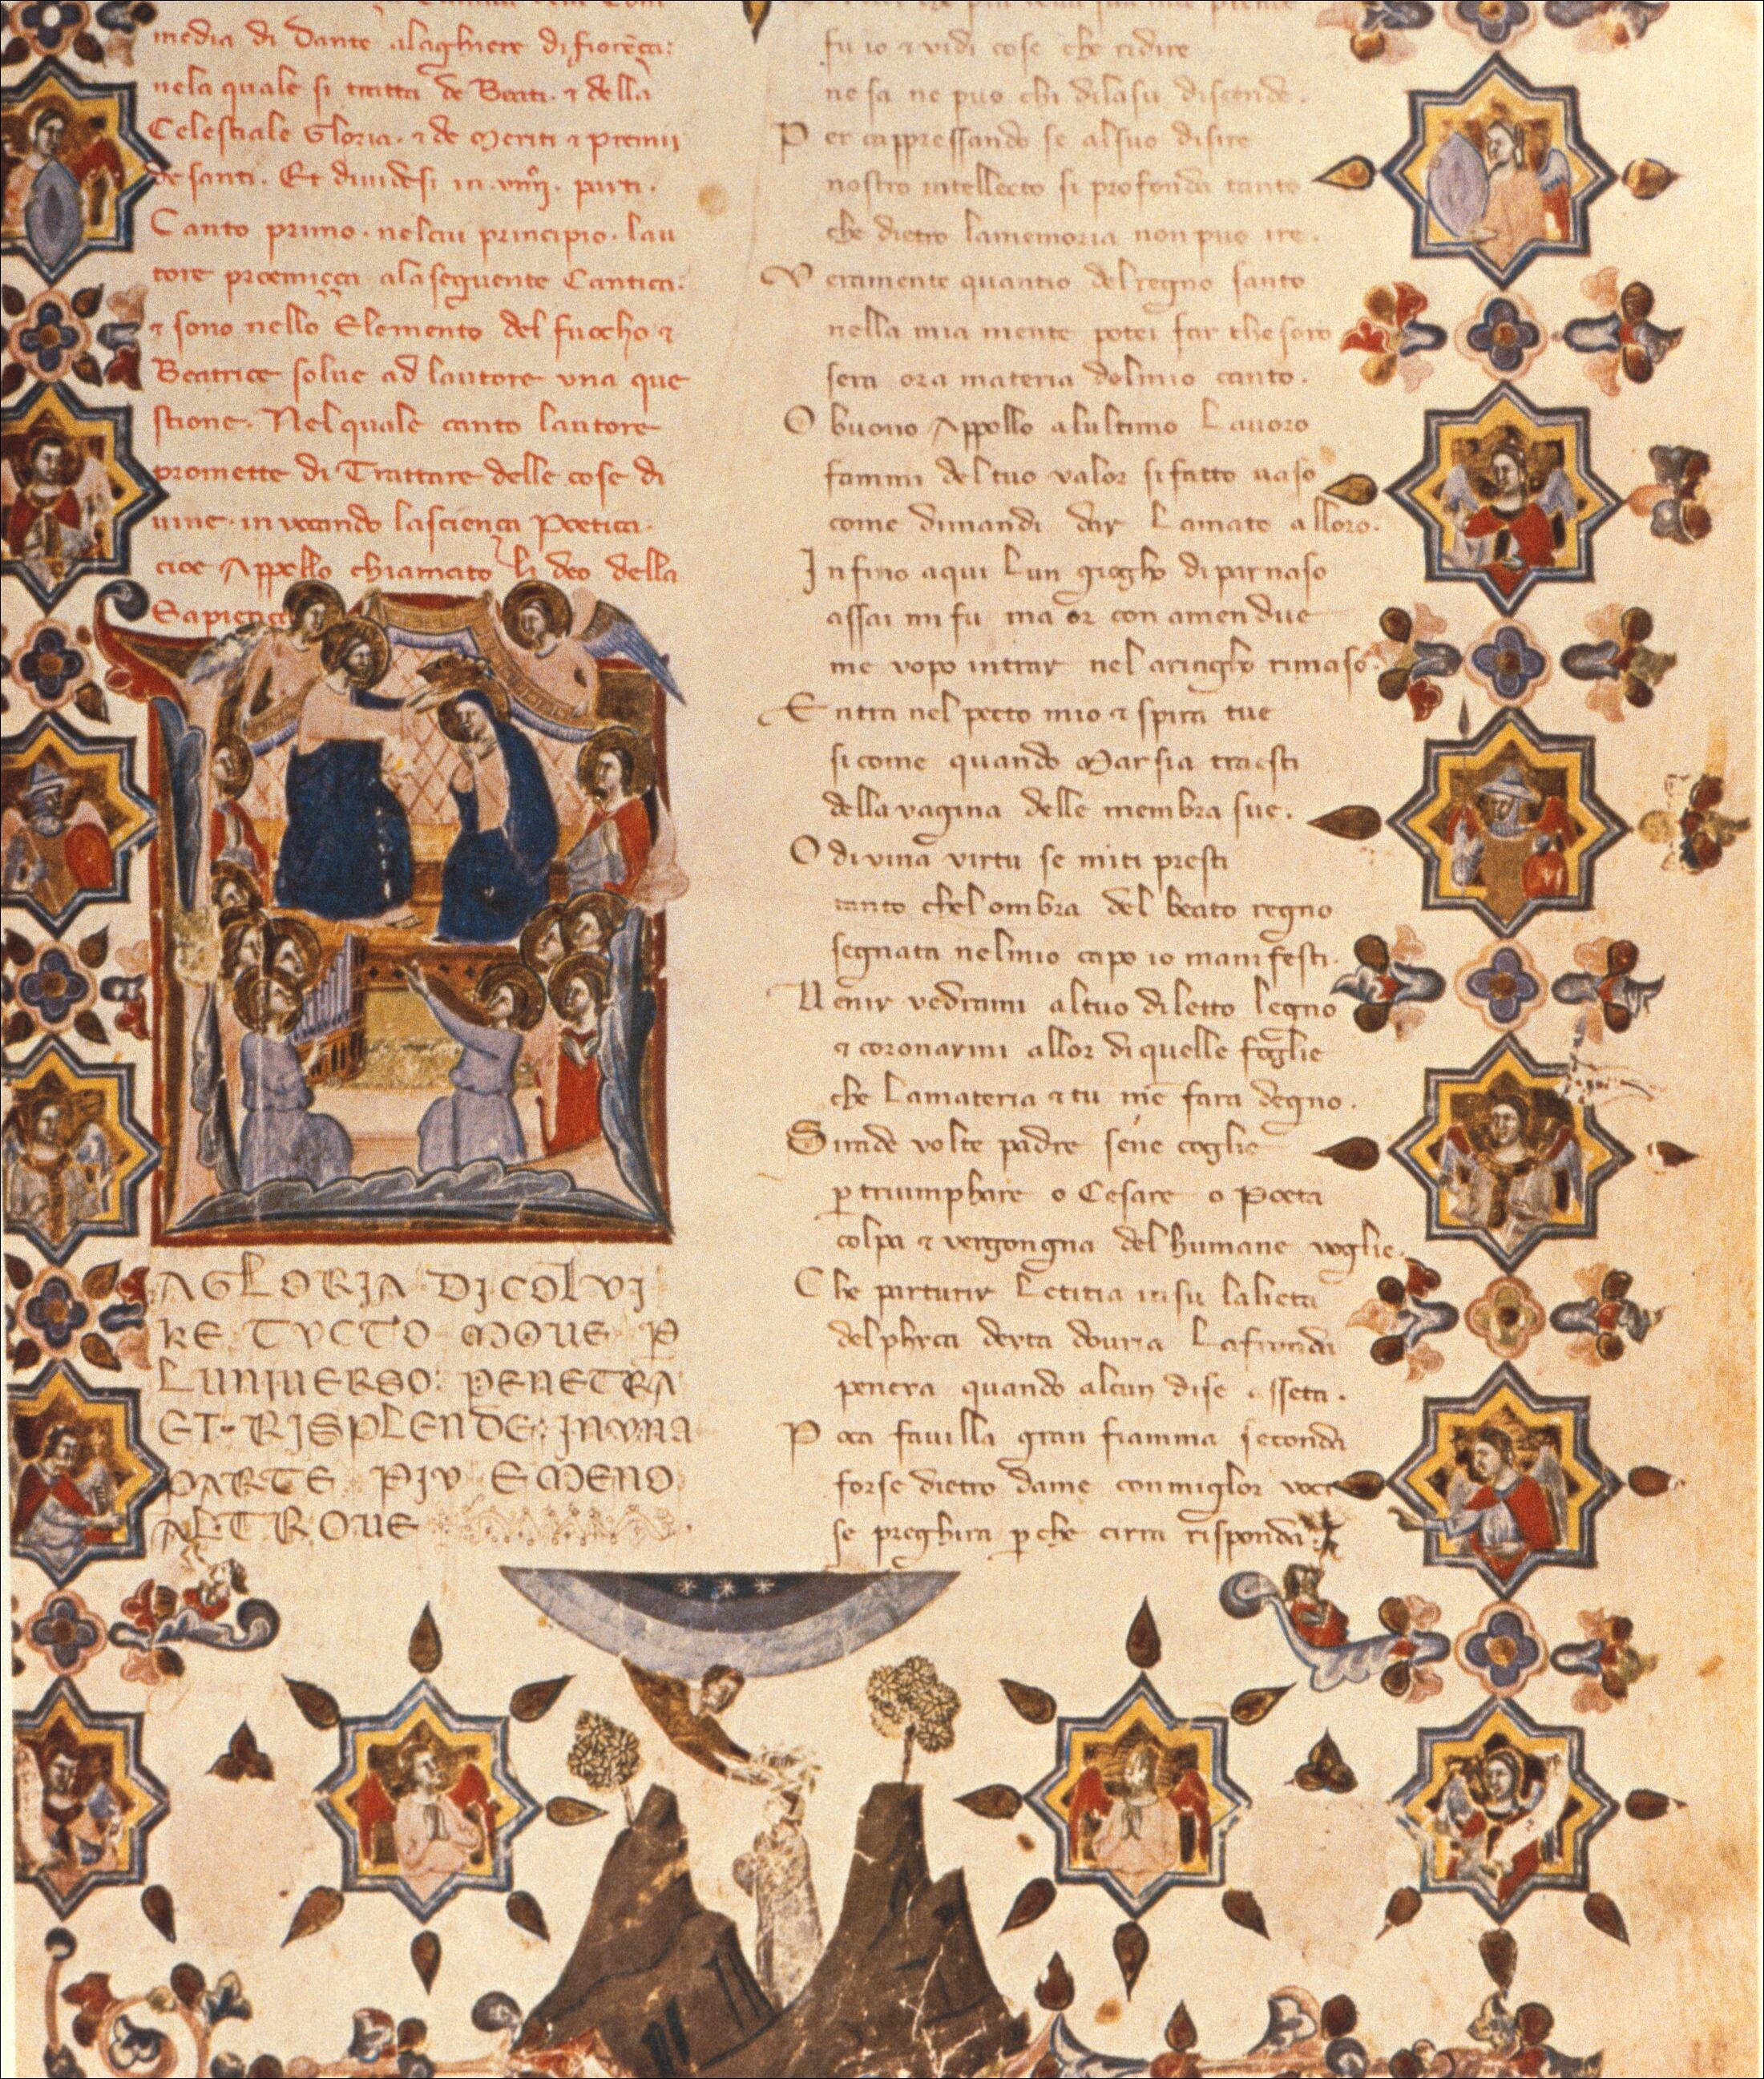 media di Dante alaghiere di fiorēça:
nela quale si tratta de Beati. ⁊ della
Celestiale Gloria. ⁊ de meriti ⁊ premii
de santi. Et diuidesi in .viiij. parti.
Canto primo. nelcui principio. lau
tore proemiçça ala sequente Cantica.
⁊ sono nello Elemento del fuocho ⁊
Beatrice solue ad lautore una que
stione. Nel quale canto lautore
promette di Trattare delle cose di
uine. inuocando lasciença Poetica.
cioe Appollo chiamato li deo della
Sapiença
AGLORIA DICOLVI
KE TVCTO MOUE P̱
LUNIUERSO: PENETRA
ET· RISPLENDE: INVNA
PARTE PIV EMENO
ALTROUE
fu io ⁊ vidi cose che ridire
ne sa ne puo chi dilasu discende.
Per cappressando se alsuo disire
nostro intellecto si profonda tanto
che dietro lamemoria non puo ire.
Veramente quantio del regno santo
nella mia mente potei far thesoro
sera ora materia delmio canto.
O buono Appollo alultimo Lauoro
fammi del tuo valor sifatto uaso
come dimandi dar Lamato alloro.
Infino aqui Lun giogho di parnaso
assai mi fu ma or con amendue
me vopo intrar nel aringho rimaso.
Entra nel pecto mio ⁊ spira tue
sicome quando Marsia traesti
della vagina delle membra sue.
O diuina virtu se miti presti
tanto chel ombra del beato regno
segnata nelmio capo io manifesti.
Uenir vedrami altuo diletto legno
⁊ coronarmi allor diquelle foglie
che Lamateria ⁊ tu mē fara degno.
Si rade volte padre sene coglie
ꝑ triumphare o Cesare o Poeta
colpa ⁊ vergongna del humane voglie.
Che parturir Letitia insu lalieta
delphyca deyta douria Lafronda
peneia quando alcun dise asseta.
Poca fauilla gran fiamma seconda
forse dietro dame conmiglor voci
se preghira ꝑche cirra risponda